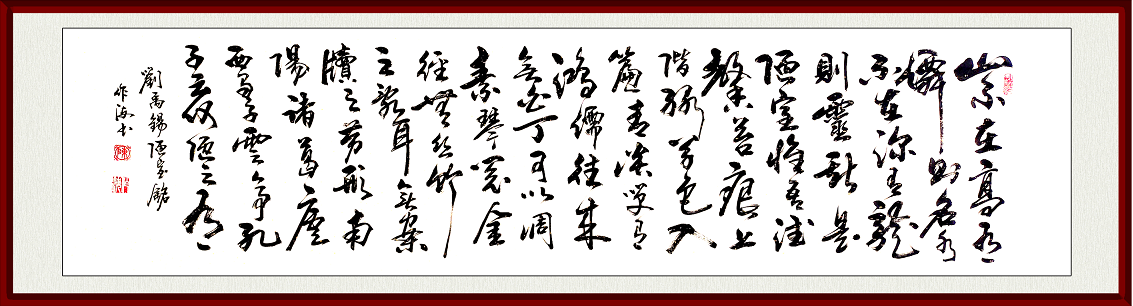 山不在高有
僊則名水
不在深有龍
則靈斯是
陋室惟吾德
馨苔痕上
階綠草色入
簾青談笑有
鴻儒往來
無白丁可以調
素琴閱金
經無絲竹
之亂耳無案
牘之勞形南
陽諸葛廬
西蜀子雲亭孔
子云何陋之有
劉禹錫陋室銘
作海书